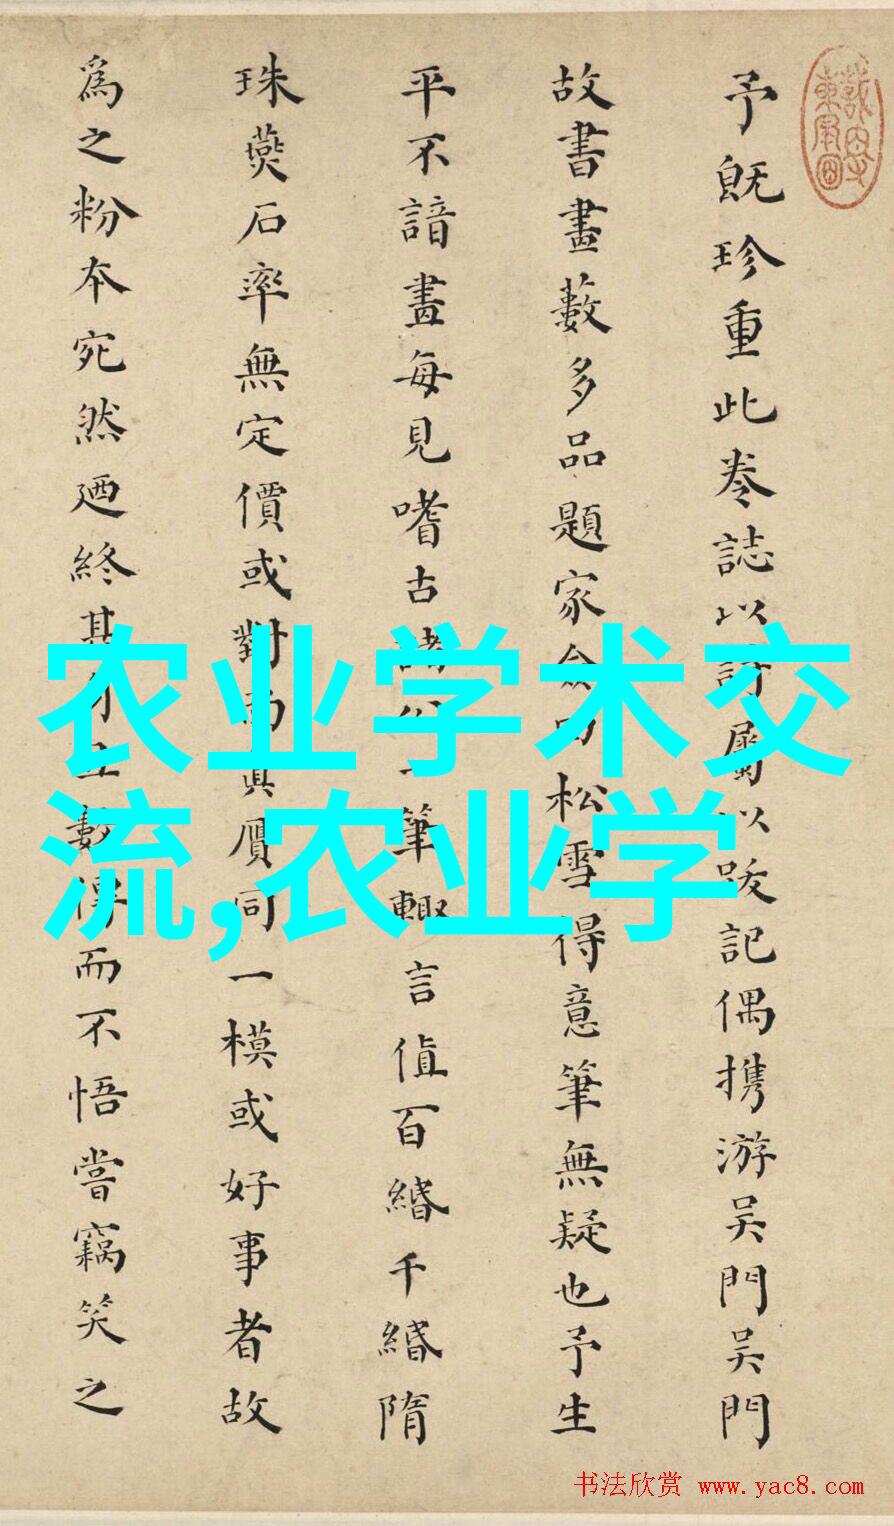 予既珍重此卷誌以詩屬以跋記偶携游吴門吴門
故書畫藪多品題家僉曰松雪得意筆無疑也予生
平不諳畫每見嗜古諸公一筆輙言值百緡千緡隋
珠燕石率無定價或對面真贋同一模或好事者故
爲之粉本宛然迺終其身且數傳而不悟嘗竊笑之
农业学术交
流,农业学
书法欣赏 www.yac8.com